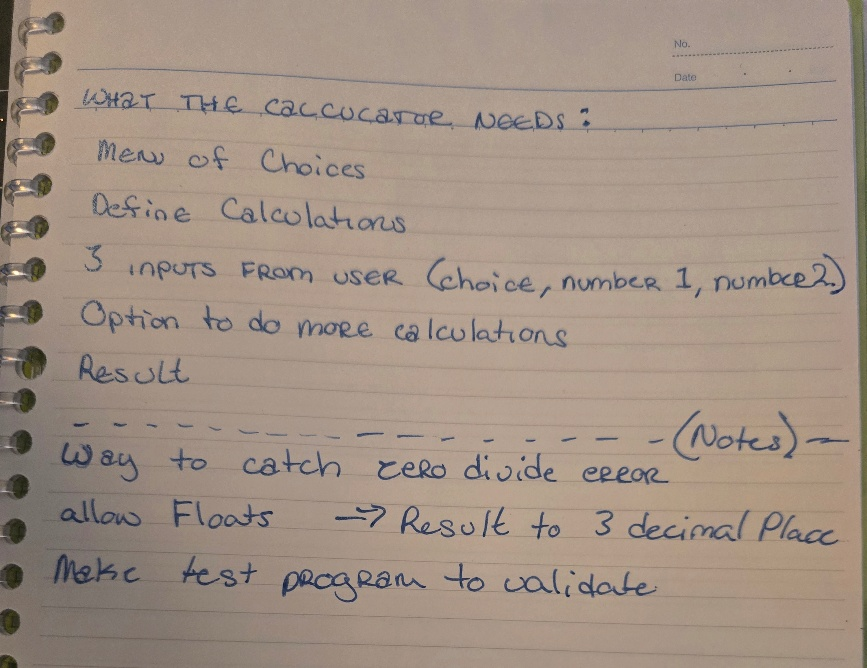 No.
Date
WHAT THE CALCULATOR NEEDS:
Menu of Choices
Define Calculations
3 inputs FROM USER (choice, number 1, number 2)
Option to do more calculations
Result
(Notes)
Way to catch zero divide error
allow Floats → Result to 3 decimal Place
Make test program to validate